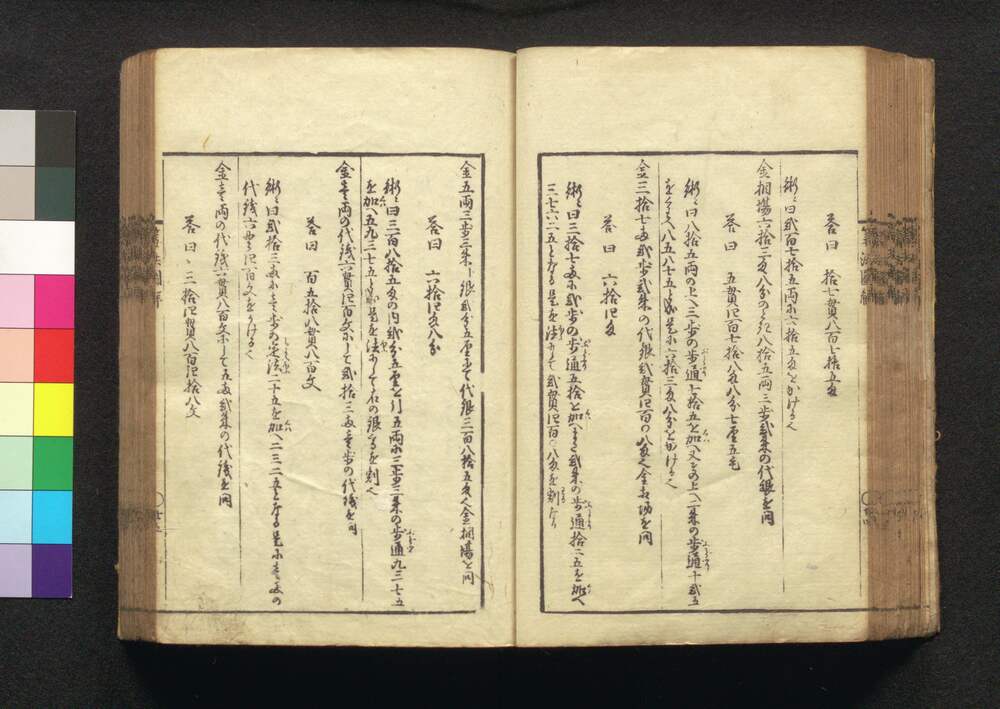 答曰 拾七貫八百七拾五匁
術ニ曰弐百七拾五両ニ六拾五匁をかける也
金相場六拾三匁八分のとき八拾五両三歩弐朱の代銀を問
答曰 五貫四百七拾八匁八分七厘五毛
術ニ曰八拾五両の上へ三歩の歩通七拾五を加へ又その上へ二朱の歩通十弐五
をくはへ八五八七五と成是に六拾三匁八分をかける也
金三拾七両弐歩弐朱の代銀弐貫四百〇八匁也金相場を問
答曰 六拾四匁
術ニ曰三拾七両に弐歩の歩通五拾を加へ弐朱の歩通拾二五を加へ
三七六二五となる是を法にして弐貫四百〇八匁を割なり
金五両三歩三朱ト銀弐分五厘にて代銀三百八拾五匁也金相場を問
答曰 六拾四匁八分
術ニ曰三百八拾五匁の内弐分五厘を引五両に三歩三朱の歩通九三七五
を加へ五九三七五と成是を法にして右の銀高を割也
金壱両の代銭六貫四百文にして弐拾三両壱歩の代銭を問
答曰 百五拾八貫八百文
術ニ曰弐拾三両に壱歩の定法二十五を加へ二三二五となる是に壱両の
代銭六貫四百文をかける也
金壱両の代銭六貫八百文にして五両弐朱の代銭を問
答曰 三拾四貫八百四拾八文